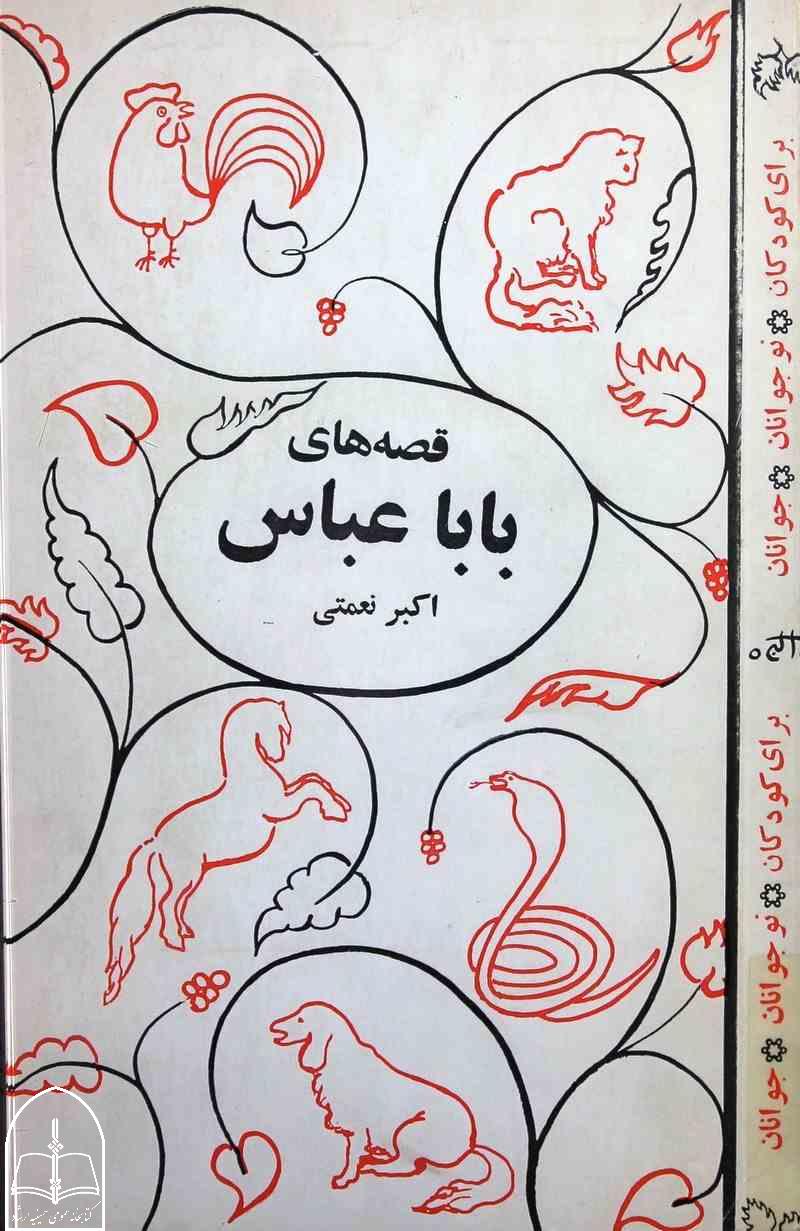 قصه‌های
بابا عباس
اکبر نعمتی
برای کودکان
نوجوانان
جوانان
برای کودکان
نوجوانان
جوانان